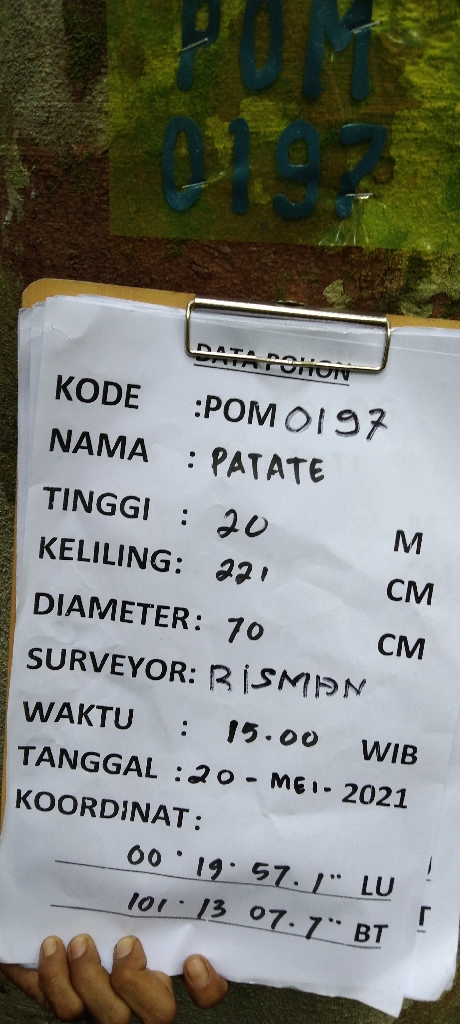 POM
0197
DATA POHON
KODE :POM 0197
NAMA : PATATE
TINGGI : 20 M
KELILING: 221 CM
DIAMETER: 70 CM
SURVEYOR: RISMAN
WAKTU : 15.00 WIB
TANGGAL : 20 - MEI - 2021
KOORDINAT:
00 ° 19 ' 57.1" LU
101 ° 13 07.7" BT